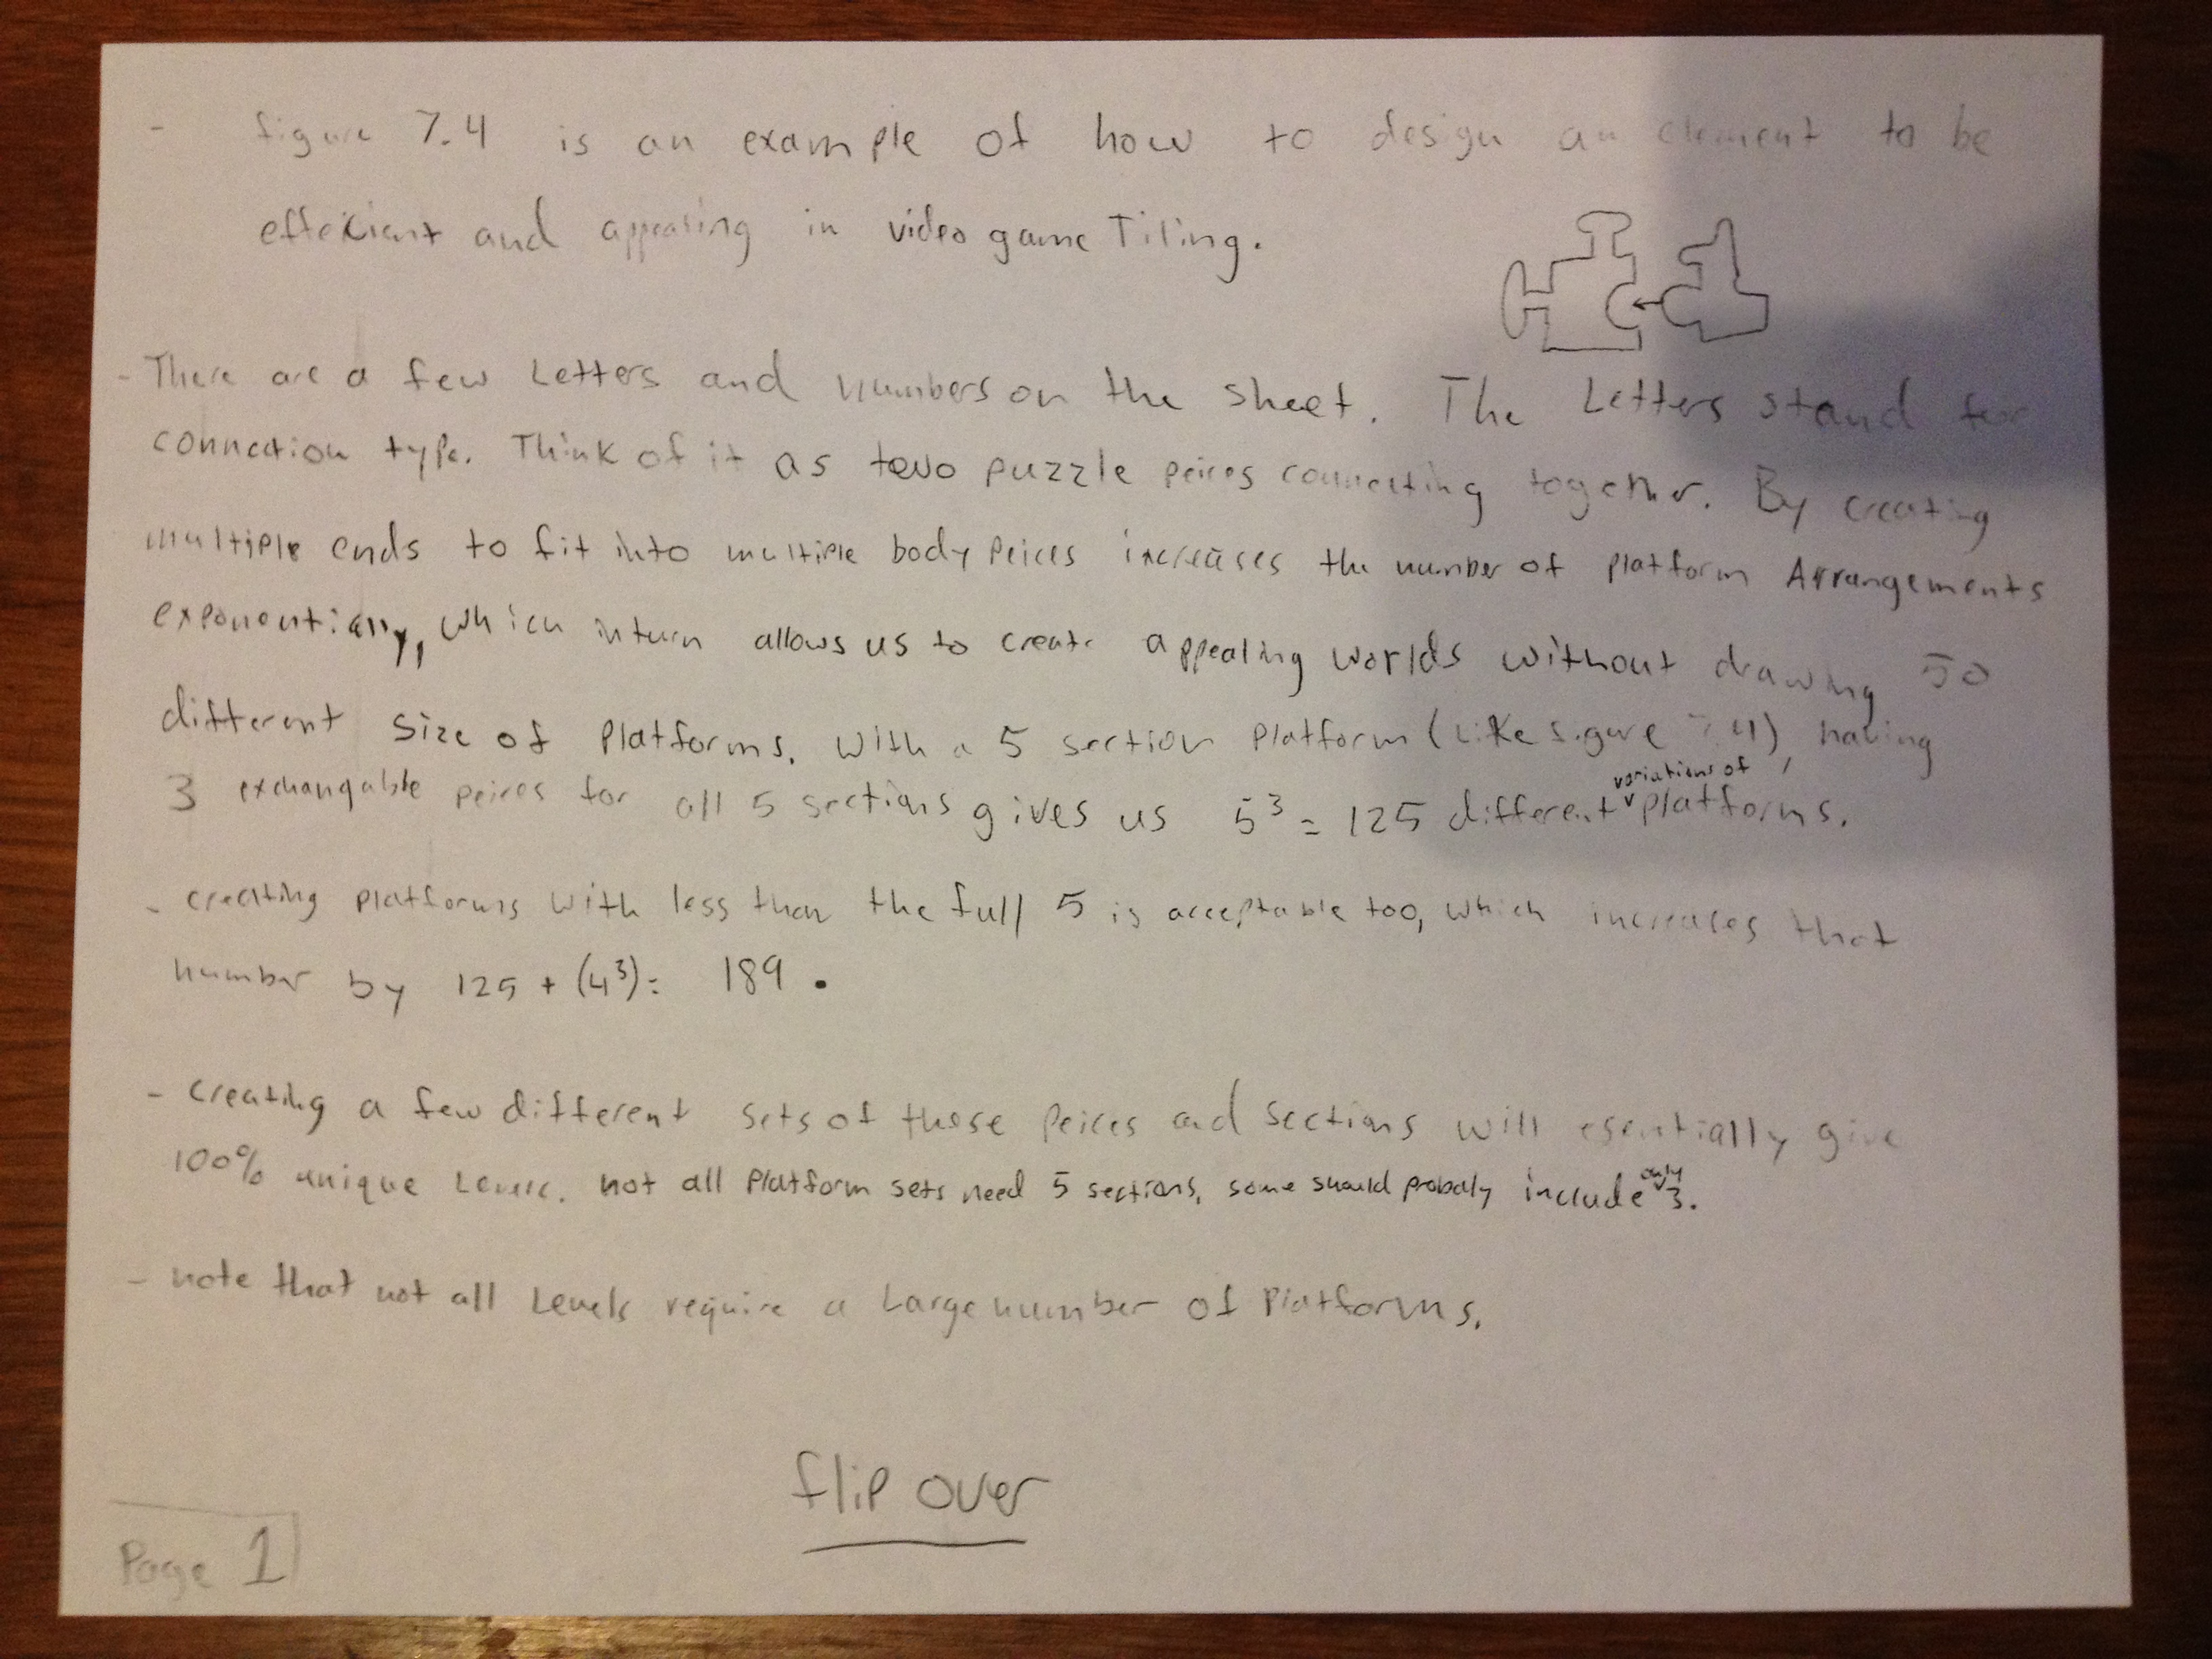 - figure 7.4 is an example of how to design an element to be
effecient and appealing in video game Tiling.
- There are a few Letters and Numbers on the sheet. The Letters stand for
connection type. Think of it as two puzzle peices connecting together. By creating
multiple ends to fit into multiple body peices increases the number of platform Arrangements
exponentially, which in turn allows us to create appealing worlds without drawing 50
different size of platforms. With a 5 section platform (like figure 7.4) having
3 exchangable peices for all 5 sections gives us 5³ = 125 different variations of platforms.
- creating platforms with less than the full 5 is acceptable too, which increases that
number by 125 + (4³) = 189.
- creating a few different sets of those peices and sections will esentially give
100% unique Levels. not all platform sets need 5 sections, some should probaly include only 3.
- note that not all Levels require a Large number of Platforms.
flip over
Page 1